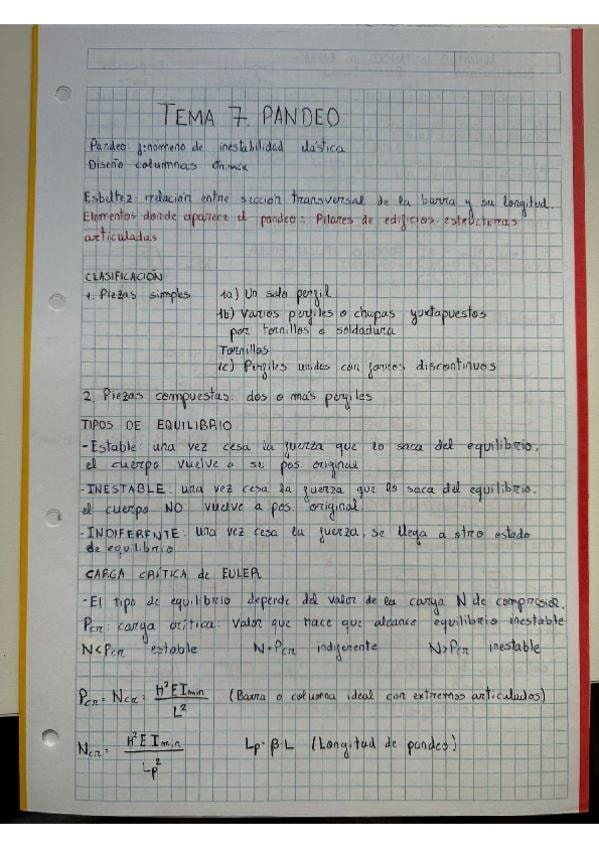 TEMA 7. PANDEO
Pandeo: fenomeno de inestabilidad elástica
Diseño columnas
Esbeltez: relación entre sección transversal de la barra y su longitud.
Elementos donde aparece el pandeo: Pilares de edificios, estructuras
articuladas
CLASIFICACIÓN
1. Piezas simples 1a) Un solo perfil
1b) Varios perfiles o chapas yuxtapuestos
por tornillos o soldadura
Tornillos
1c) Perfiles unidos con forros discontinuos
2. Piezas compuestas: dos o más perfiles
TIPOS DE EQUILIBRIO
- Estable: una vez cesa la fuerza que lo saca del equilibrio,
el cuerpo vuelve a su pos. original
- INESTABLE: una vez cesa la fuerza que lo saca del equilibrio,
el cuerpo NO vuelve a pos. original
- INDIFERENTE: una vez cesa la fuerza, se llega a otro estado
de equilibrio
CARGA CRÍTICA de EULER
- El tipo de equilibrio depende del valor de la carga N de compresión.
Pcr: carga crítica: Valor que hace que alcance equilibrio inestable
N<Pcr estable N=Pcr indiferente N>Pcr inestable
Pcr = Ncr = π²EImin / L² (Barra o columna ideal con extremos articulados)
Ncr = π²EImin / Lp² Lp=β·L (Longitud de pandeo)